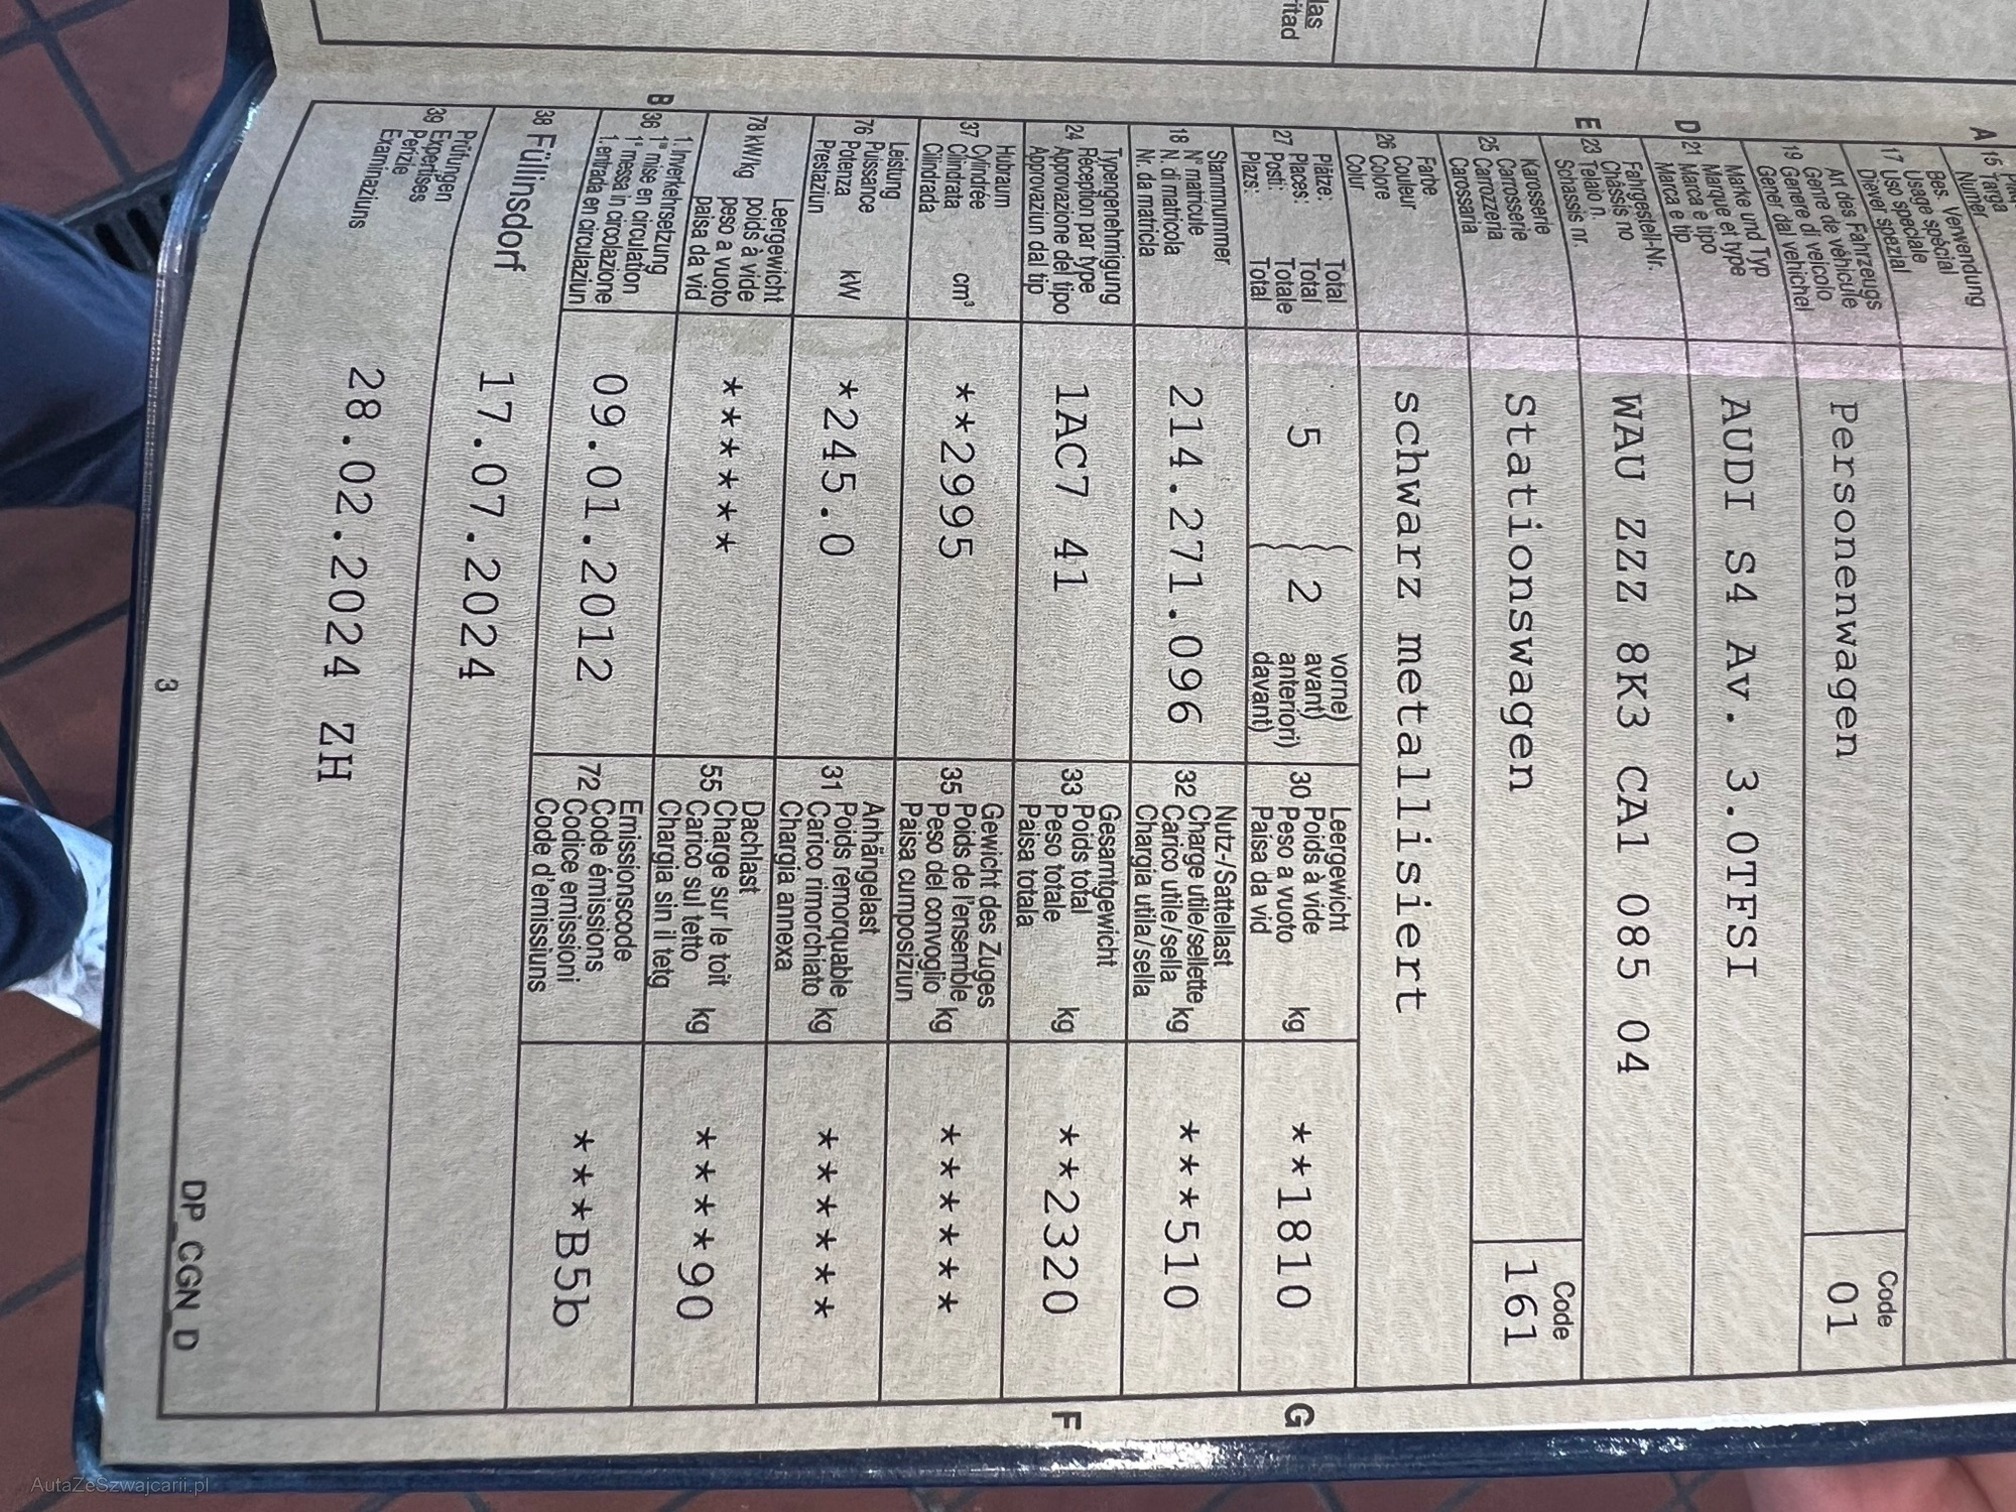 las
ritad
A 15 Targa
Numer
Bes. Verwendung
Usage spécial
17 Uso speciale
Diever spezial
Art des Fahrzeugs
Genre de véhicule
19 Genere di veicolo
Gener dal vehichel
Personenwagen
Code
01
Marke und Typ
Marque et type
D 21 Marca e tipo
Marca e tip
AUDI S4 Av. 3.0TFSI
Fahrgestell-Nr.
Châssis no
E 23 Telaio n.
Schassis nr.
WAU ZZZ 8K3 CA1 085 04
Karosserie
Carrosserie
25 Carrozzeria
Carossaria
Stationswagen
Code
161
Farbe
Couleur
26 Colore
Colur
schwarz metallisiert
Plätze: Total
Places: Total
27 Posti: Totale
Plazs: Total
5
2
vorne)
avant)
anteriori)
davant)
Leergewicht
Poids à vide
30 Peso a vuoto kg
Paisa da vid
**1810
G
Stammnummer
N° matricule
18 N. di matricola
Nr. da matricla
214.271.096
Nutz-/Sattellast
Charge utile/sellette
32 Carico utile/sella kg
Chargia utila/sella
***510
Typengenehmigung
Réception par type
24 Approvazione del tipo
Approvaziun dal tip
1AC7 41
Gesamtgewicht
Poids total
33 Peso totale kg
Paisa totala
**2320
F
Hubraum
Cylindrée
37 Cilindrata cm³
Cilindrada
**2995
Gewicht des Zuges
Poids de l'ensemble
35 Peso del convoglio kg
Paisa cumposiziun
******
Leistung
Puissance
76 Potenza kW
Prestaziun
*245.0
Anhängelast
Poids remorquable
31 Carico rimorchiato kg
Chargia annexa
******
Leergewicht
78 kW/kg poids à vide
peso a vuoto
paisa da vid
******
Dachlast
Charge sur le toit
55 Carico sul tetto kg
Chargia sin il tetg
****90
1. Inverkehrsetzung
1re mise en circulation
B 36 1a messa in circolazione
1. entrada en circulaziun
09.01.2012
Emissionscode
Code émissions
72 Codice emissioni
Code d'emissiuns
***B5b
38 Füllinsdorf
17.07.2024
Prüfungen
39 Expertises
Perizie
Examinaziuns
28.02.2024 ZH
3
DP_CGN_D
AutaZeSzwajcarii.pl